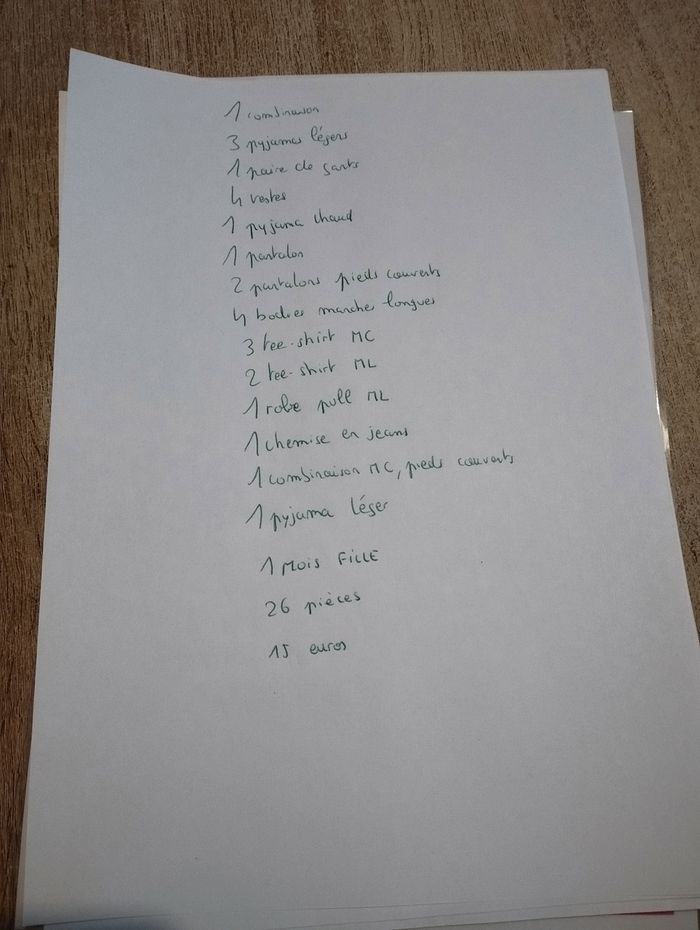 1 combinaison
3 pyjamas légers
1 paire de gants
4 vestes
1 pyjama chaud
1 pantalon
2 pantalons pieds couverts
4 bodies manches longues
3 tee-shirt MC
2 tee-shirt ML
1 robe pull ML
1 chemise en jeans
1 combinaison MC, pieds couverts
1 pyjama léger
1 MOIS FILLE
26 pièces
15 euros